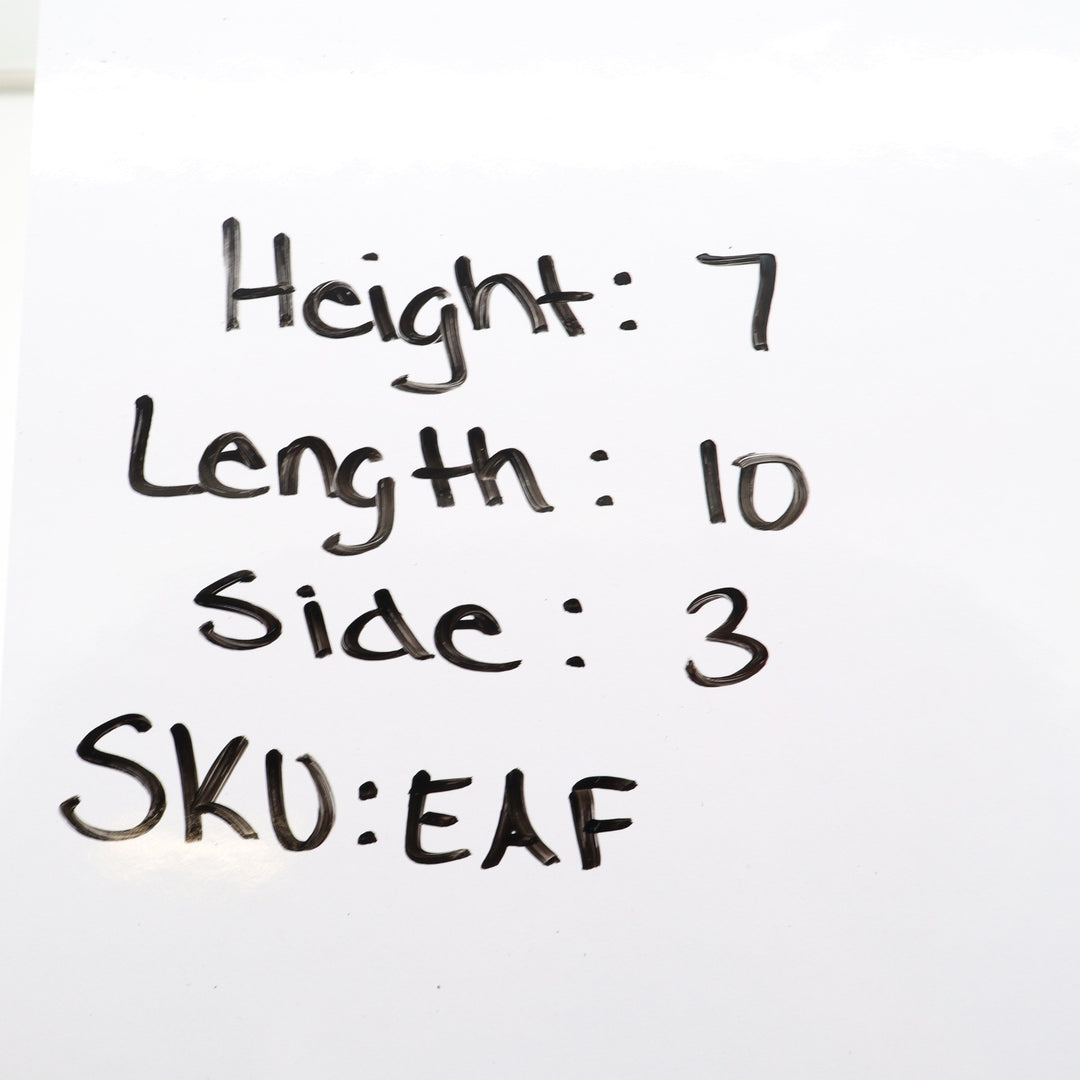 Height: 7
Length: 10
Side: 3
SKU: EAF